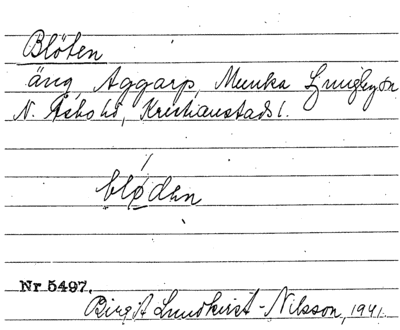 Blöten
äng, Aggarp, Munka Ljungby sn
N. Åsbo hd, Kristianstads l.
blødan
Nr 5497.
Birgit Lundkvist-Nilsson, 1941.